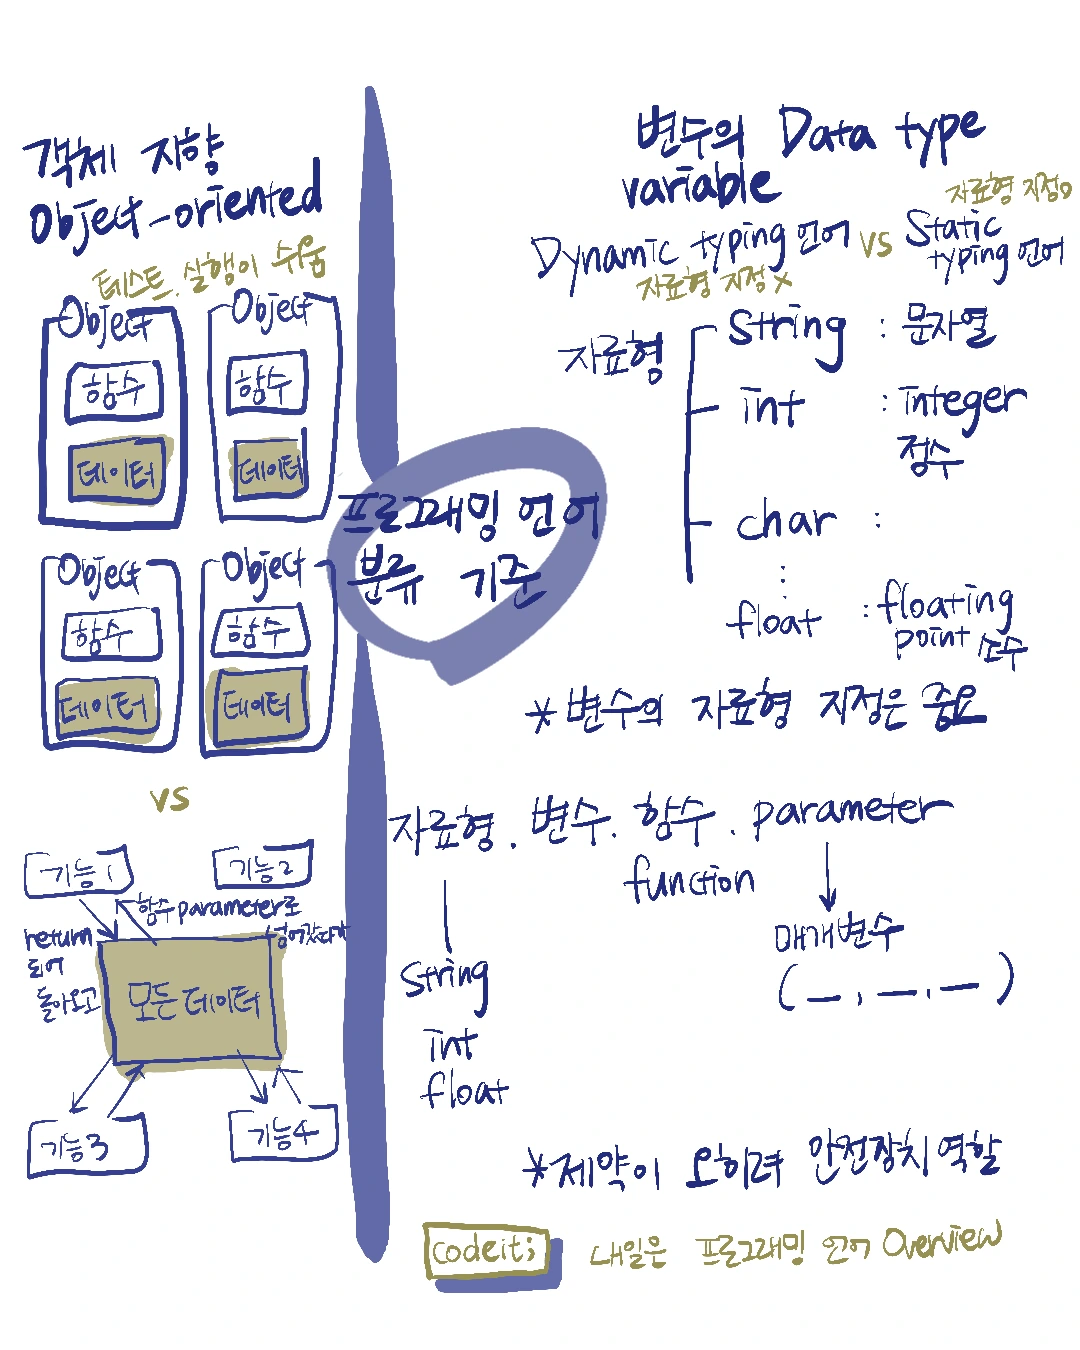 객체 지향
Object-oriented
테스트. 실행이 쉬움
Object
함수
데이터
Object
함수
데이터
Object
함수
데이터
Object
함수
데이터
vs
기능1
기능2
함수 parameter로
넘어갔다가
return
되어
돌아오고
모든 데이터
기능3
기능4
프로그래밍 언어
분류 기준
변수의 Data type
variable
자료형 지정o
Dynamic typing 언어 vs Static typing 언어
자료형 지정x
자료형
String : 문자열
int : integer
정수
char :
:
float : floating
point 소수
*변수의 자료형 지정은 중요
자료형. 변수. 함수. parameter
function
매개변수
( _, _, _ )
String
int
float
*제약이 오히려 안전장치 역할
codeit;
내일은 프로그래밍 언어 Overview